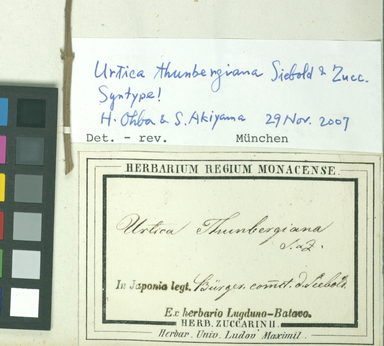 Urtica thunbergiana Siebold & Zucc.
Syntype!
H. Ohba & S. Akiyama 29 Nov. 2007
Det. - rev. München
HERBARIUM REGIUM MONACENSE.
Urtica Thunbergiana
S. a Z.
In Japonia legt. Bürger. comt. d. Siebold.
Ex herbario Lugduno-Batavo.
HERB. ZUCCARINII.
Herbar. Univ. Ludov. Maximil.